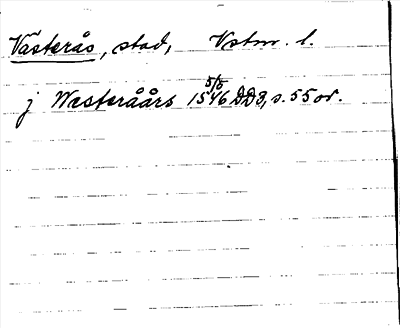 Västerås, stad, Vstm. l.
j Wæsteråårs 15 5/5 46 DD3, s. 55 or.